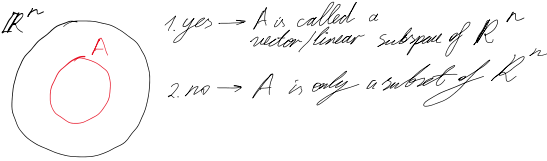 ℝⁿ
A
1. yes → A is called a
vector/linear subspace of ℝⁿ
2. no → A is only a subset of ℝⁿ